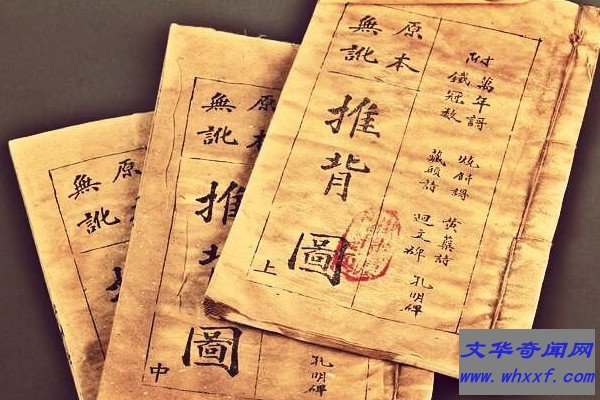 附
萬年謌
鐵冠數
燒餅謌
藏頭詩
黄蘗詩
迴文碑
孔明碑
原本
無訛
推背圖
上
原本
無訛
推
圖
中
孔明碑
原
無訛
文华奇闻网
www.whxxf.com